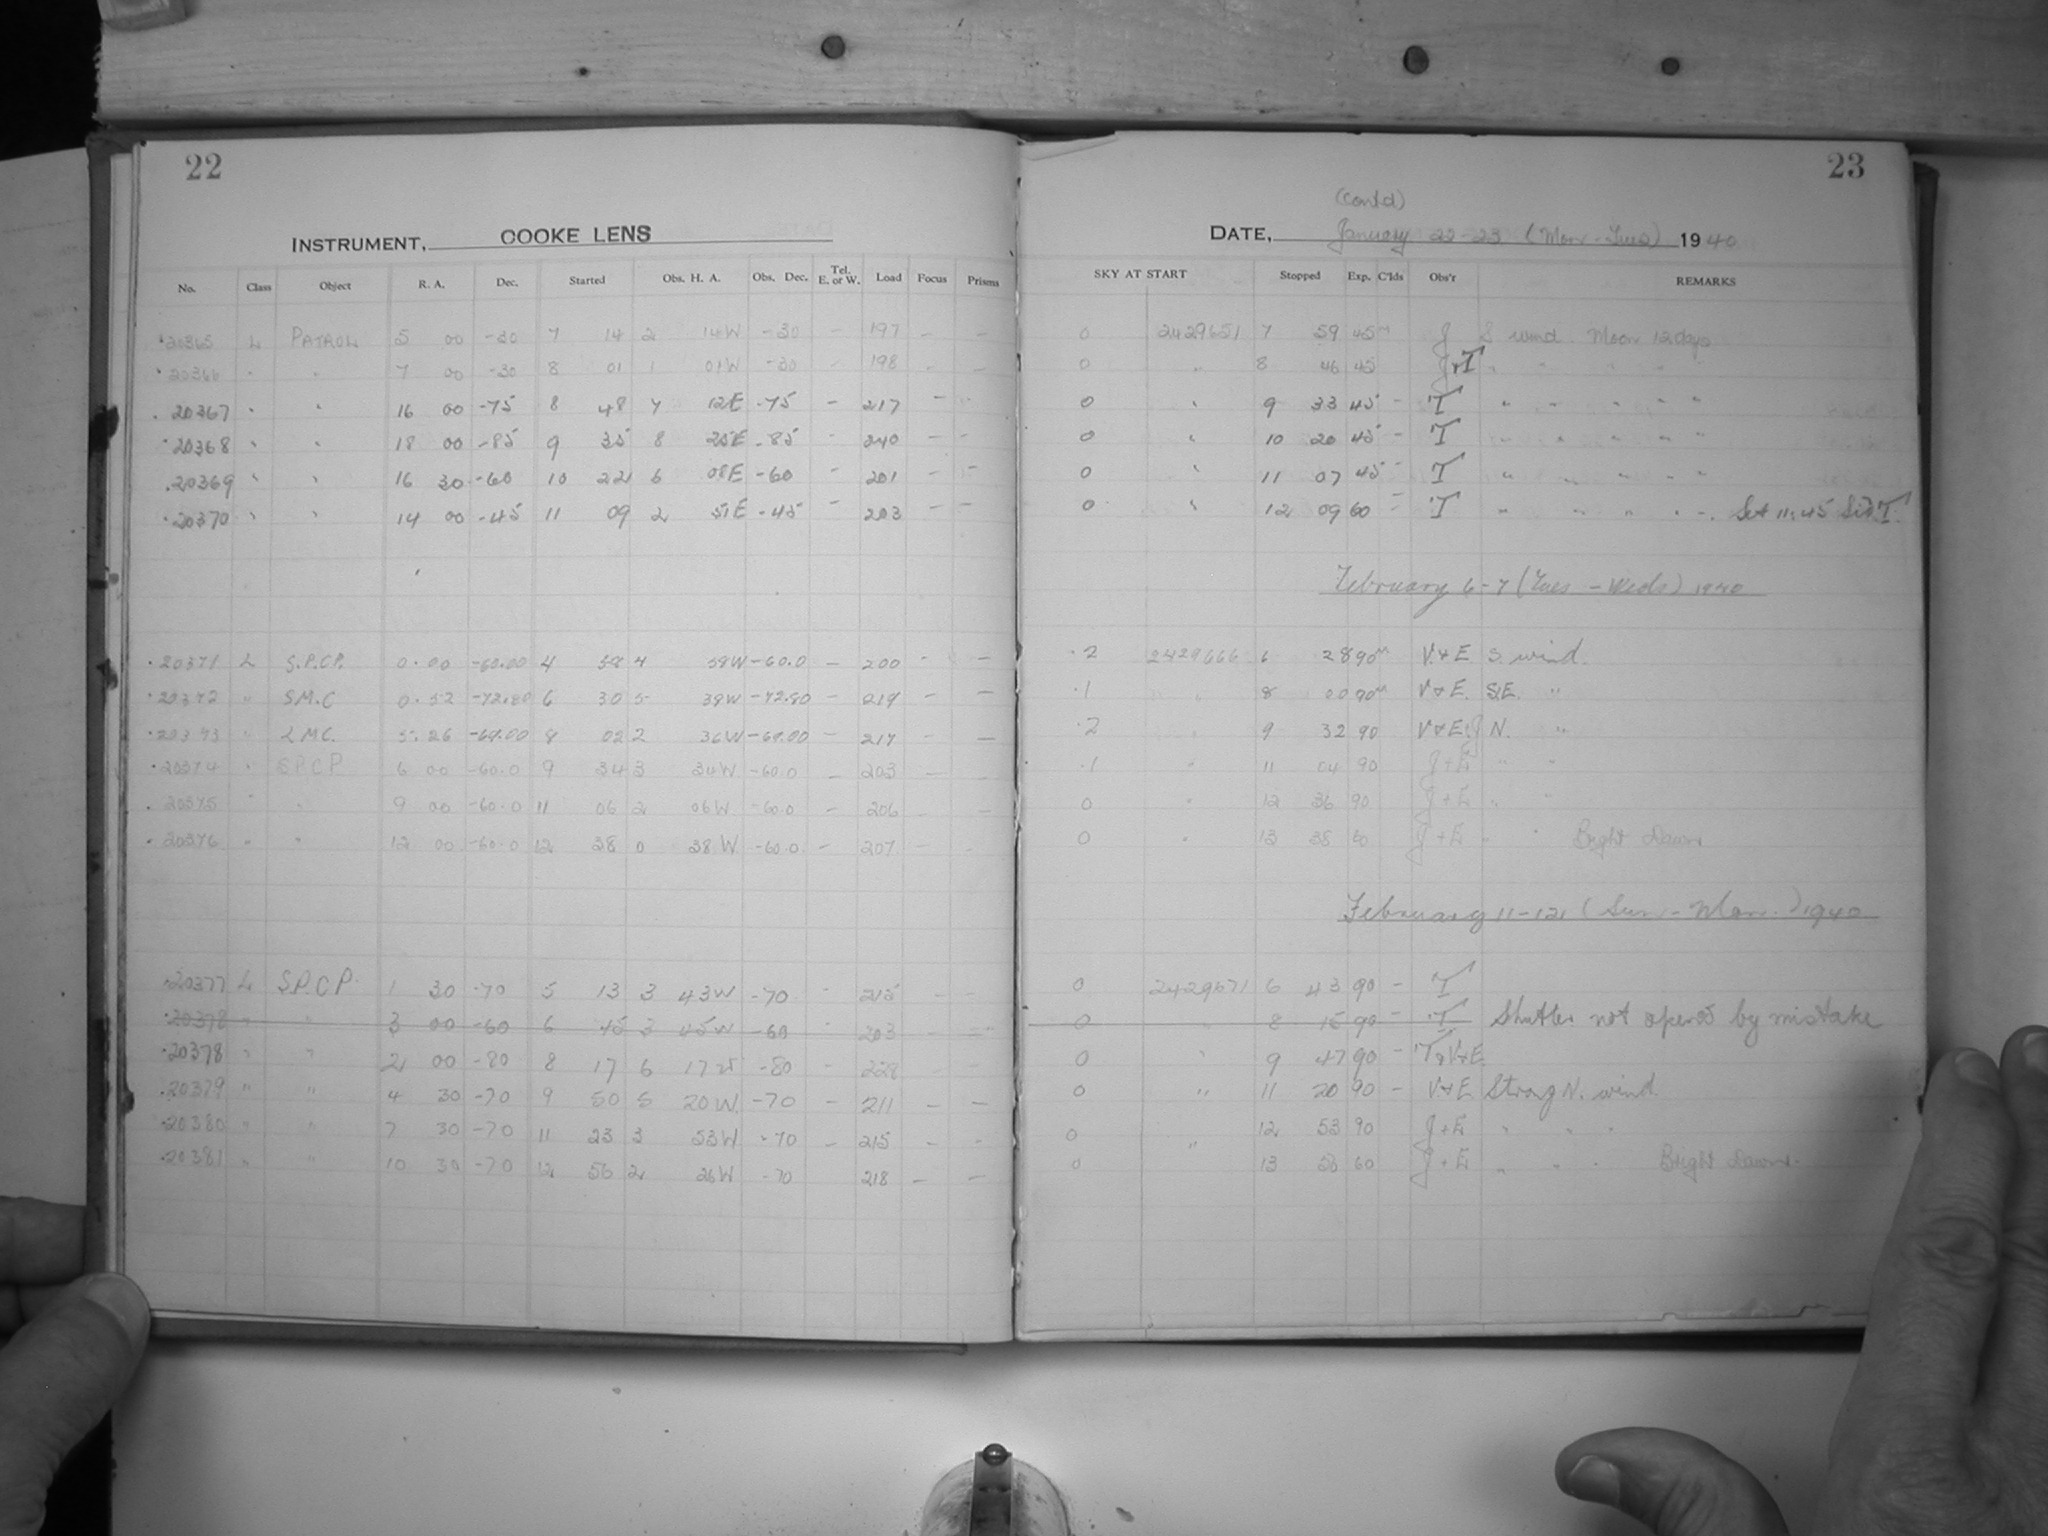 22
INSTRUMENT, COOKE LENS
No. Class Object R. A. Dec. Started Obs. H. A. Obs. Dec. Tel. E. or W. Load Focus Prisms
20365 L PATROL 5 00 -30 7 14 2 14W -30 - 197 - -
20366 " " 7 00 -30 8 01 1 01W -30 - 198 - -
20367 " " 16 00 -75 8 48 7 12E -75 - 217 - -
20368 " " 18 00 -85 9 35 8 25E -85 - 240 - -
20369 " " 16 30 -60 10 22 6 08E -60 - 201 - -
20370 " " 14 00 -45 11 09 2 51E -45 - 203 - -
20371 L S.P.C.P. 0.00 -60.00 4 58 4 58W -60.0 - 200 - -
20372 " S.M.C 0.52 -72.80 6 30 5 38W -72.80 - 219 - -
20373 " L.M.C. 5.26 -69.00 8 02 2 36W -69.00 - 217 - -
20374 " S.P.C.P 6 00 -60.0 9 34 3 34W -60.0 - 203 - -
20375 " " 9 00 -60.0 11 06 2 06W -60.0 - 206 - -
20376 " " 12 00 -60.0 12 38 0 38W -60.0 - 207 - -
20377 L S.P.C.P. 1 30 -70 5 13 3 43W -70 - 215 - -
20378 " " 3 00 -60 6 45 3 45W -60 203
20378 " " 2 00 -80 8 17 6 17W -80 - 228 - -
20379 " " 4 30 -70 9 50 5 20W -70 - 211 - -
20380 " " 7 30 -70 11 23 3 53W -70 - 215 - -
20381 " " 10 30 -70 12 56 2 26W -70 218 - -
23
(contd)
DATE, January 22-23 (Mon.-Tues) 1940
SKY AT START Stopped Exp. C'lds Obs'r REMARKS
0 2429651 7 59 45m J S wind Moon 12 days
0 " 8 46 45 J+T " " " " "
0 " 9 33 45 - T " " " " "
0 " 10 20 45 - T " " " " "
0 " 11 07 45 - T " " " " "
0 " 12 09 60 - T " " " " " Set 11:45 Sid T.
February 6-7 (Tues - Weds) 1940
.2 2429666 6 28 90m V+E S. wind.
.1 " 8 00 90m V+E. SE. "
.2 " 9 32 90 V+E+J N. "
.1 " 11 04 90 J+E " "
0 " 12 36 90 J+E " "
0 " 13 38 60 J+E " " Bright Dawn
February 11-12 (Sun.-Mon.) 1940
0 2429671 6 43 90 - T
0 " 8 15 90 - T Shutter not opened by mistake
0 " 9 47 90 - T+V+E.
0 " 11 20 90 - V+E Strong N. wind.
0 " 12 53 90 J+E " " "
0 13 56 60 J+E " " " Bright Dawn.